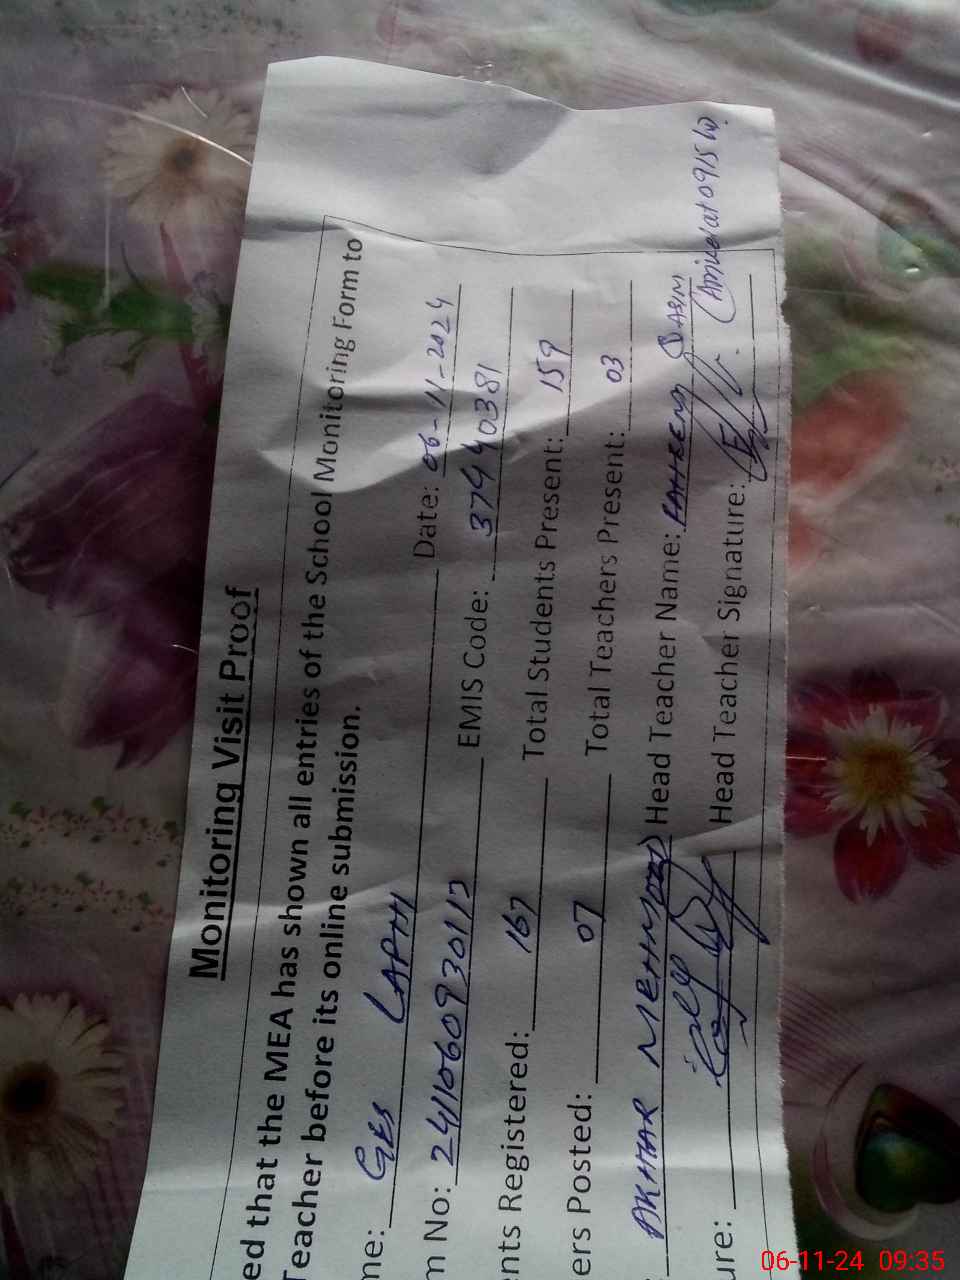 Monitoring Visit Proof
ed that the MEA has shown all entries of the School Monitoring Form to
Teacher before its online submission.
me: GES LAPHI Date: 06-11-2024
m No: 2411060930117 EMIS Code: 37440381
nts Registered: 167 Total Students Present: 159
ers Posted: 07 Total Teachers Present: 03
: AKHTAR MEHMOOD Head Teacher Name: FAHEEM QASIM
ure: Head Teacher Signature: (Arrived at 0915
06-11-24 09:35